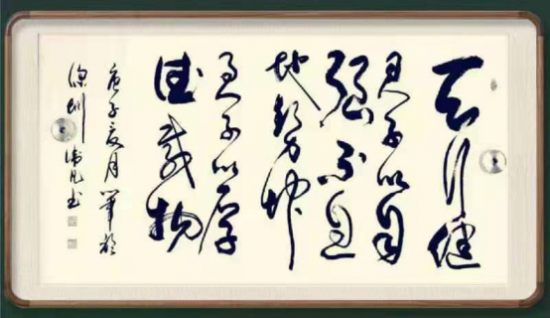 天行健
君子以自
强不息
地势坤
君子以厚
德载物
庚子夏月笔於
深圳 凡书